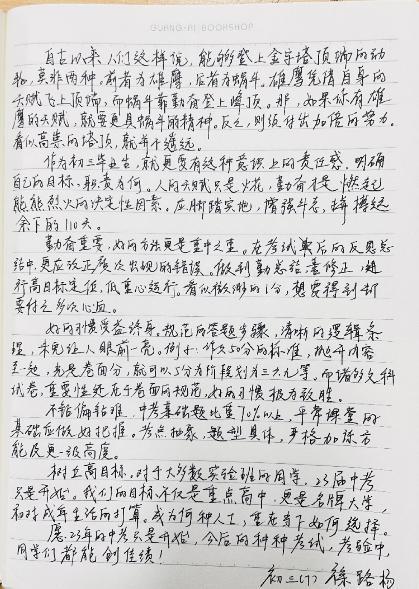 GUANG-AI BOOKSHOP
自古以来人们这样说，能够登上金字塔顶端的动
物，莫非两种。前者为雄鹰，后者为蜗牛。雄鹰凭借自身的
天赋飞上顶端，而蜗牛靠勤奋登上峰顶。那，如果你有雄
鹰的天赋，就要更具蜗牛的精神。反之，则须付出加倍的努力。
看似高耸的塔顶，就并不遥远。
作为初三毕业生，就更要有这种意识上的责任感，明确
自己的目标，职责为何。人的天赋只是火花，勤奋才是燃起
熊熊烈火的决定性因素，应脚踏实地，增强斗志，拼搏这
余下的110天。
勤奋重要，好的方法更是重中之重。在考试最后的反思总
结中，更应改正屡次出现的错误，做到勤总结善修正，进
行高目标定位，低重心运行。看似微渺的1分，想要得到却
要付之多次心血。
好的习惯受益终身。规范的答题步骤，清晰的逻辑条
理，未免让人眼前一亮。例如：作文50分的标准，抛开内容
不一起，光是卷面分，就可以5分为阶段划为三六九等。而诸如文科
试卷，重要性还在于卷面的规范，好的习惯极为致胜。
不钻偏钻难，中考基础题比重70%以上，平常课堂的
基础应做好把握。考点抽象，题型具体，严格加练方
能反更一级高度。
树立高目标。对于大多数实验班的同学，23届中考
只是开始。我们的目标不仅是重点高中，更是名牌大学，
初对成年生活的打算。成为何种人士，重在当下如何选择。
愿：23年的中考只是开始，今后的种种考试，考验中，
同学们都能创佳绩！
初三(7) 徐路杨